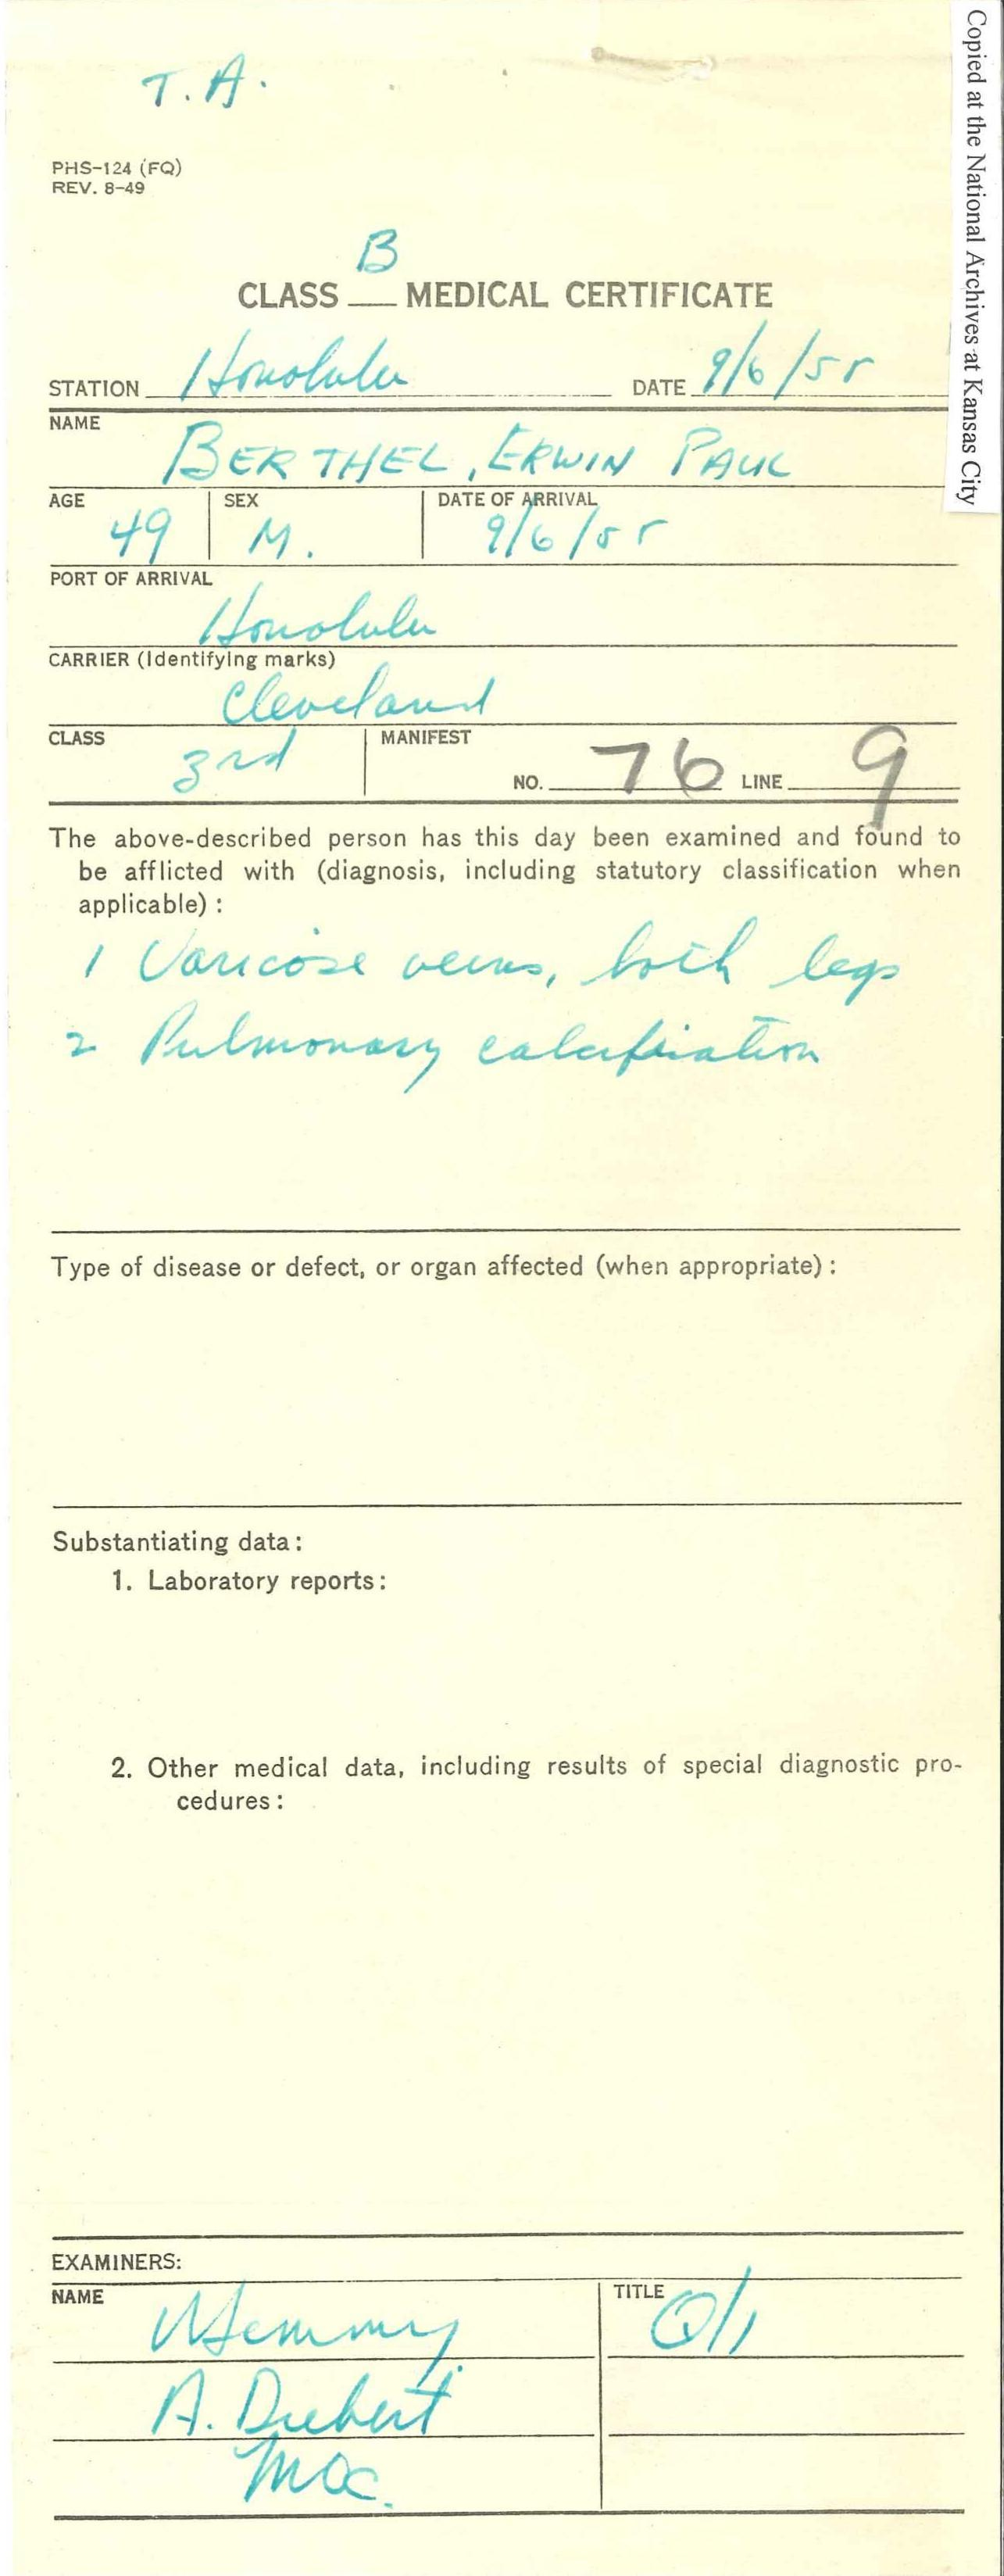 T.A.
PHS-124 (FQ)
REV. 8-49
B
CLASS MEDICAL CERTIFICATE
STATION Honolulu DATE 9/6/55
NAME
BERTHEL, ERWIN PAUL
AGE SEX DATE OF ARRIVAL
49 M. 9/6/55
PORT OF ARRIVAL
Honolulu
CARRIER (Identifying marks)
Cleveland
CLASS MANIFEST
3rd NO. 76 LINE 9
The above-described person has this day been examined and found to
be afflicted with (diagnosis, including statutory classification when
applicable):
1 Varicose veins, both legs
2 Pulmonary calcification
Type of disease or defect, or organ affected (when appropriate):
Substantiating data:
1. Laboratory reports:
2. Other medical data, including results of special diagnostic pro-
cedures:
EXAMINERS:
NAME TITLE
A.
Copied at the National Archives at Kansas City